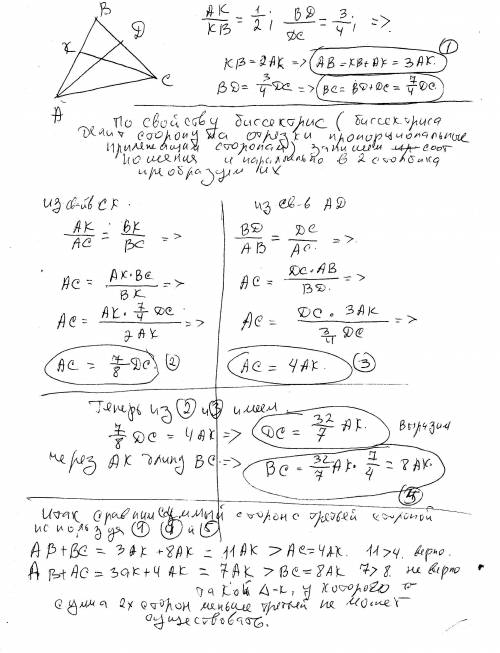 B
D
K
C
A
AK/KB = 1/2; BD/DC = 3/4; =>.
KB=2AK => AB=KB+AK = 3AK. 1
BD= 3/4 DC => BC=BD+DC= 7/4 DC.
По свойству биссектрис (биссектриса
делит сторону на отрезки пропорциональные
прилежащим сторонам) запишем соот
ношения и параллельно в 2 столбика
преобразуем их
из св-в СК.
AK/AC = BK/BC =>
AC = AK·BC/BK =>
AC = AK · 7/4 DC / 2AK =>
AC = 7/8 DC. 2
из св-в AD
BD/AB = DC/AC =>.
AC = DC·AB/BD. =>
AC = DC · 3AK / 3/4 DC =>
AC = 4AK. 3
Теперь из 2 и 3 имеем
7/8 DC = 4AK => DC = 32/7 AK. Выразим
через AK длину BC. => BC = 32/7 AK · 7/4 = 8AK.
Итак сравним суммы сторон с третьей стороной
используя 1 и
AB+BC = 3AK+8AK = 11AK > AC=4AK. 11>4. верно.
AB+AC = 3AK+4AK = 7AK > BC=8AK 7>8. не верно
такой Δ-к, у которого
сумма 2х сторон меньше третьей не может
существовать.